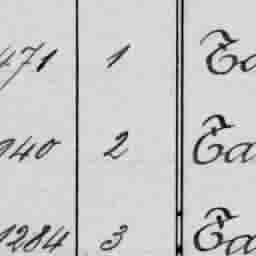 471 1 Ta
940 2 Ta
1284 3 Ta